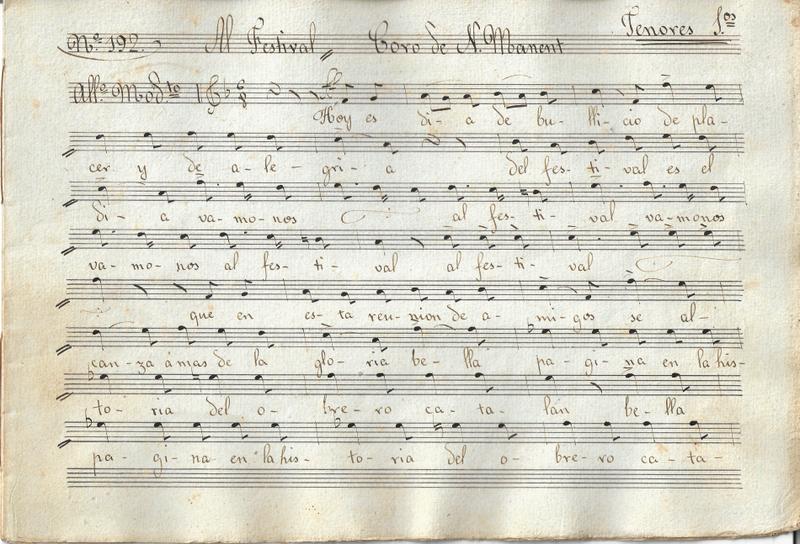 Nº 192. Al Festival Coro de N. Manent Tenores 1.os
All.º Mod.to
Hoy es di- a de bu- lli- cio de pla-
cer y de a- le- gri- a del fes- ti- val es el
di- a va- mo- nos al fes- ti- val va- monos
va- mo- nos al fes- ti- val al fes- ti- val
que en es- ta reu- nion de a- mi- gos se al-
can- za á mas de la glo- ria be- lla pa- gi- na en la his-
to- ria del o- bre- ro ca- ta- lán be- lla
pa- gi- na en la his- to- ria del o- bre- ro ca- ta-